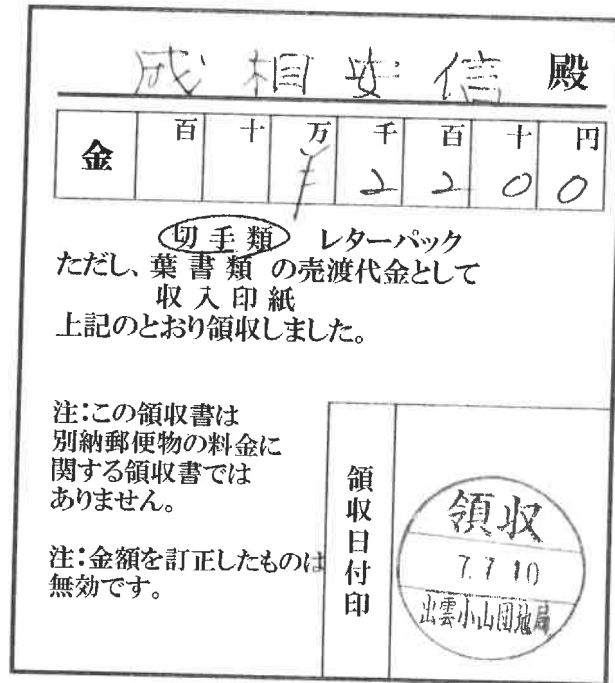 成相安信 殿
金 百 十 万 千 百 十 円
¥ 2 2 0 0
切手類 レターパック
ただし、葉書類の売渡代金として
収入印紙
上記のとおり領収しました。
注:この領収書は
別納郵便物の料金に
関する領収書では
ありません。
注:金額を訂正したものは
無効です。
領収日付印
領収
7.7.10
出雲小山団地局